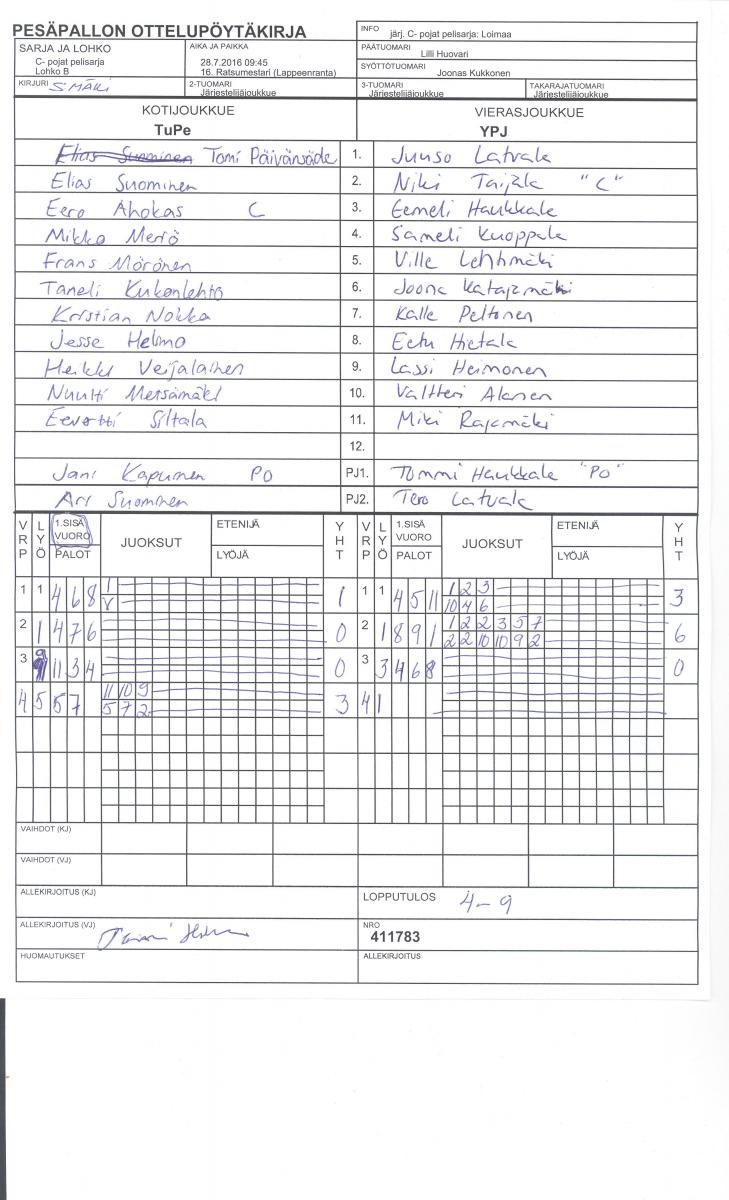 PESÄPALLON OTTELUPÖYTÄKIRJA
INFO järj. C- pojat pelisarja: Loimaa
SARJA JA LOHKO
C- pojat pelisarja
Lohko B
AIKA JA PAIKKA
28.7.2016 09:45
16. Ratsumestari (Lappeenranta)
PÄÄTUOMARI
Lilli Huovari
SYÖTTÖTUOMARI
Joonas Kukkonen
KIRJURI
2-TUOMARI
Järjestelijäjoukkue
3-TUOMARI
Järjestelijäjoukkue
TAKARAJATUOMARI
Järjestelijäjoukkue
KOTIJOUKKUE
TuPe
VIERASJOUKKUE
YPJ
Elias Suominen Tomi Päivänsäde 1. Juuso Latvala
Elias Suominen 2. Niki Taijala "C"
Eero Ahokas C 3. Eemeli Haukkala
Mikko Meriö 4. Sameli Kuoppala
Frans Mörönen 5. Ville Lehtimäki
Taneli Kukonlehto 6. Joona Katajamäki
Kristian Nokka 7. Kalle Peltonen
Jesse Helmo 8. Eetu Hietala
Heikki Veijalainen 9. Lassi Heimonen
Nuutti Metsämäki 10. Valtteri Alanen
Eevertti Siltala 11. Miki Rajamäki
12.
Jani Kapunen PO PJ1. Tommi Haukkala "PO"
Ari Suominen PJ2. Tero Latvala
VRP LYÖ 1.SISÄ VUORO PALOT JUOKSUT ETENIJÄ LYÖJÄ YHT VRP LYÖ 1.SISÄ VUORO PALOT JUOKSUT ETENIJÄ LYÖJÄ YHT
1 1 4 6 8 1 V 1 1 1 4 5 11 1 2 3 10 4 6 3
2 1 4 7 6 0 2 1 8 9 1 1 2 2 3 5 7 2 2 10 10 9 2 6
3 9 11 3 4 0 3 3 4 6 8 0
4 5 5 7 11 10 9 5 7 2 3 4 1
VAIHDOT (KJ)
VAIHDOT (VJ)
ALLEKIRJOITUS (KJ)
LOPPUTULOS 4-9
ALLEKIRJOITUS (VJ)
NRO
411783
HUOMAUTUKSET
ALLEKIRJOITUS